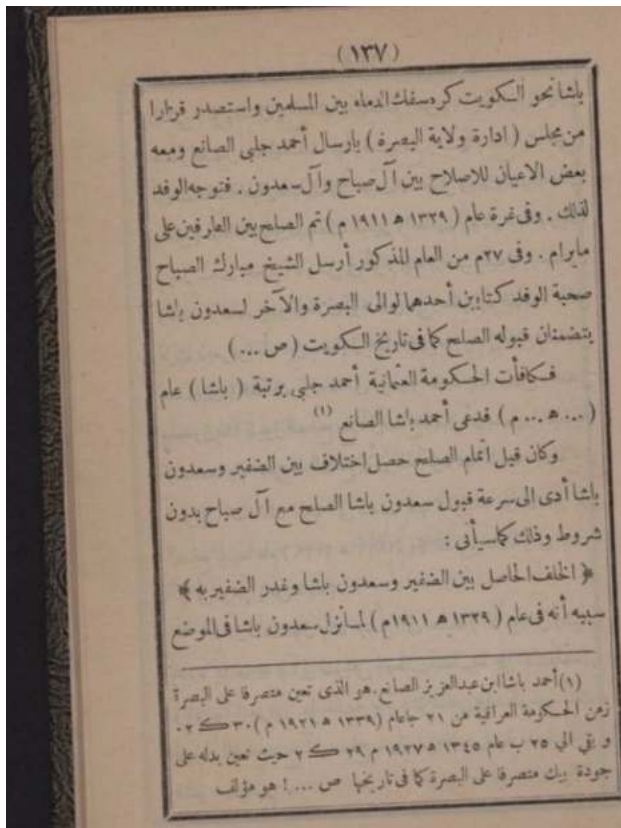 (١٣٧)
باشا نحو الكويت كره سفك الدماء بين المسلمين واستصدر قرارا
من مجلس (ادارة ولاية البصرة) بارسال أحمد جلبي الصانع ومعه
بعض الاعيان للاصلاح بين آل صباح وآل سعدون . فتوجه الوفد
لذلك . وفى غرة عام (١٣٢٩ ه ١٩١١ م) تم الصلح بين الطرفين على
مايرام . وفى ٢٧م من العام المذكور أرسل الشيخ مبارك الصباح
صحبة الوفد كتابين أحدهما لوالى البصرة والآخر لسعدون باشا
يتضمنان قبوله الصلح كما فى تاريخ الكويت (ص ...)
فكافأت الحكومة العثمانية أحمد جلبي برتبة (باشا) عام
(... ه ... م) فدعى أحمد باشا الصانع (١)
وكان قبل اتمام الصلح حصل اختلاف بين الضفير وسعدون
باشا أدى الى سرعة قبول سعدون باشا الصلح مع آل صباح بدون
شروط وذلك كما سيأتى :
﴿ الخلف الحاصل بين الضفير وسعدون باشا وغدر الضفير به ﴾
سببه أنه فى عام (١٣٢٩ ه ١٩١١م) لما نزل سعدون باشا فى الموضع
(١) أحمد باشا ابن عبدالعزيز الصانع . هو الذى تعين متصرفا على البصرة
زمن الحكومة العراقية من ٢١ جا عام (١٣٣٩ ه ١٩٢١ م) ٣٠ ك ٢ .
و بقي الي ٢٥ ب عام ١٣٤٥ ه ١٩٢٧ م ٢٩ ك ٢ حيث تعين بدله على
جودة بيك متصرفا على البصرة كما فى تاريخها ص ... ! هو مؤلف